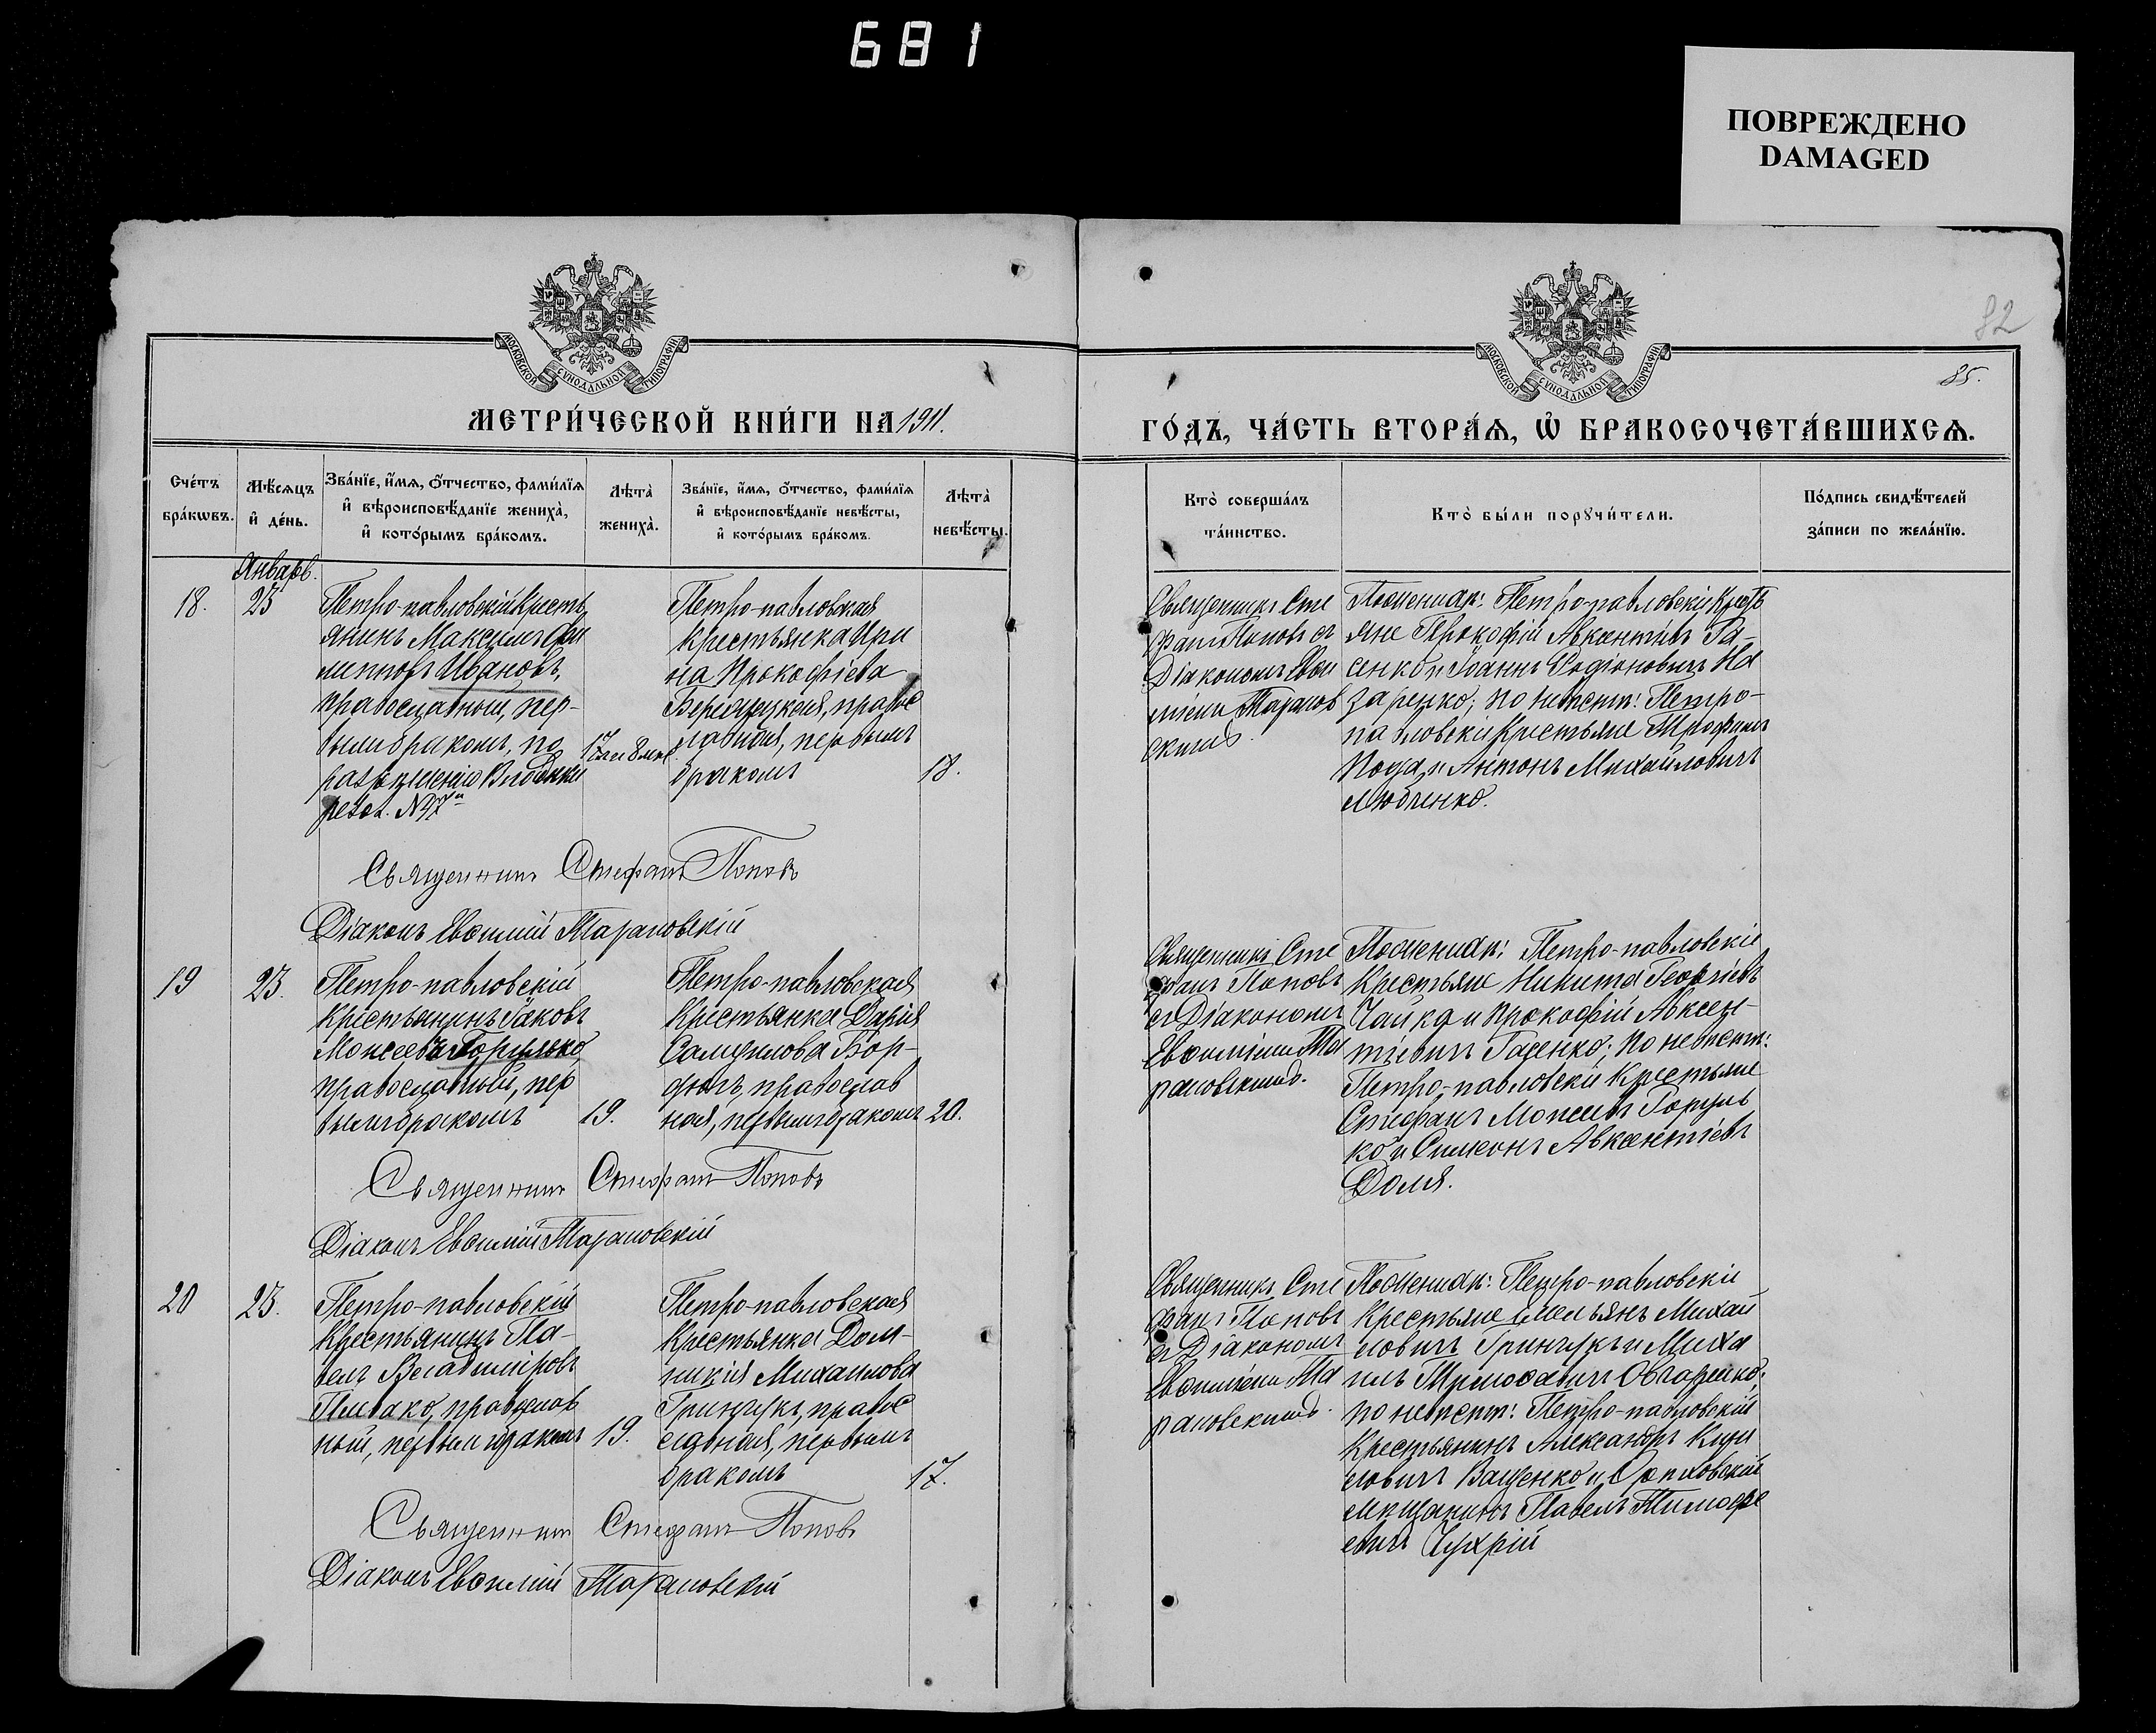 681
ПОВРЕЖДЕНО
DAMAGED
82
85.
МОСКОВСКОЙ СУНОДАЛЬНОЙ ТИПОГРАФІИ
МОСКОВСКОЙ СУНОДАЛЬНОЙ ТИПОГРАФІИ
МЕТРИ́ЧЕСКОЙ КНИ́ГИ НА 1911.
ГО́ДЪ, ЧА́СТЬ ВТОРА́Ѧ, Ѡ҆ БРАКОСОЧЕТА́ВШИХСѦ.
Сче́тъ бра́кѡвъ.
Мѣ́сѧцъ и҆ де́нь.
Зва́нїе, и҆́мѧ, ѻ҆́тчество, фами́лїѧ
и҆ вѣроисповѣ́данїе жениха̀,
и҆ кото́рымъ бра́комъ.
Лѣта̀ жениха̀.
Зва́нїе, и҆́мѧ, ѻ҆́тчество, фами́лїѧ
и҆ вѣроисповѣ́данїе невѣ́сты,
и҆ кото́рымъ бра́комъ.
Лѣта̀ невѣ́сты.
Кто̀ соверша́лъ
та́инство.
Кто̀ бы́ли порꙋчи́тели.
По́дпись свидѣ́телей
за́писи по жела́нїю.
Январь.
18.
23
Петро-павловскій крестъ
янинъ Максимъ Фи
липповъ Ивановъ,
православный, пер-
вымъ бракомъ, по
разрешенію Владыки
резол. №47
17 лет 8 мес.
Петро-павловская
крестьянка Ири
на Прокофіева
правос
лавная, первымъ
бракомъ
18.
Священникъ Сте
фанъ Поповъ съ
Діакономъ Евѳи
міемъ Таранов
скимъ.
По женихѣ: Петро-павловскіе крест
яне Прокофій Авксентіевъ Га-
сенко и Іоаннъ Родіоновичъ На
заренко; по невѣстѣ: Петро-
павловскіе крестьяне Трофимъ
и Антонъ Михайловичъ
Любченко.
Священникъ Стефанъ Поповъ
Діаконъ Евѳимій Тарановскій
19
23.
Петро-павловскій
крестьянинъ Іаковъ
Моисеевъ Горулько
православный, пер
вымъ бракомъ
19.
Петро-павловская
крестьянка Дарія
Самуилова Бор-
дюгъ, православ
ная, первымъ бракомъ
20.
Священникъ Сте
фанъ Поповъ
съ Діакономъ
Евѳиміемъ Та
рановскимъ.
По женихѣ: Петро-павловскіе
крестьяне Никита Георгіевъ
Чайка и Прокофій Авксен-
тіевичъ Гасенко; по невѣстѣ:
Петро-павловскіе крестьяне
Стефанъ Моисеевъ Горуль
ко и Симеонъ Авксентіевъ
Доля.
Священникъ Стефанъ Поповъ
Діаконъ Евѳимій Тарановскій
20
23.
Петро-павловскій
крестьянинъ Па-
велъ Владиміровъ
Пивако, православ
ный, первымъ бракомъ
19.
Петро-павловская
крестьянка Дом-
никія Михаилова
Гринчукъ, право
славная, первымъ
бракомъ
17.
Священникъ Сте
фанъ Поповъ
съ Діакономъ
Евѳиміемъ Та
рановскимъ.
По женихѣ: Петро-павловскіе
крестьяне Емельянъ Михай
ловичъ Гринчукъ и Миха
илъ Овчаренко;
по невѣстѣ: Петро-павловскій
крестьянинъ Александръ
Ващенко и Орѣховскій
мѣщанинъ Павелъ Тимофе
евичъ Чухрій
Священникъ Стефанъ Поповъ
Діаконъ Евѳимій Тарановскій